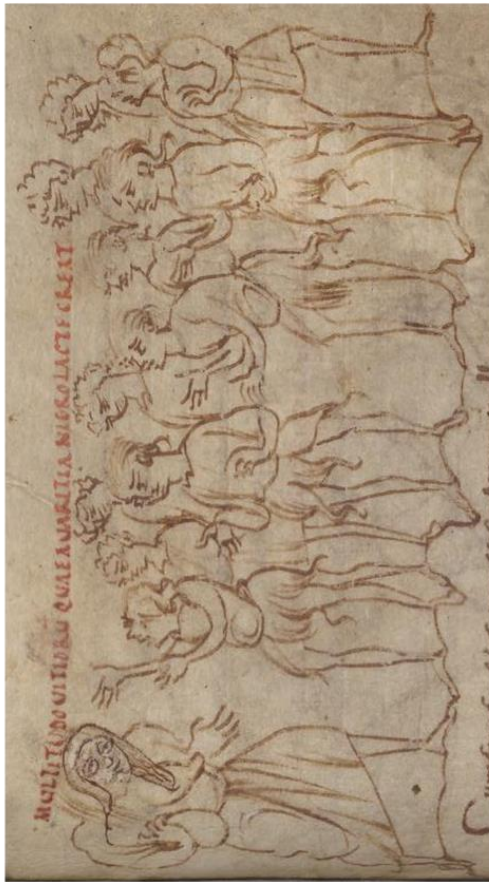 MULTITUDO UITIORU QUAE AUARITIA NIGRO LACTE CREAT